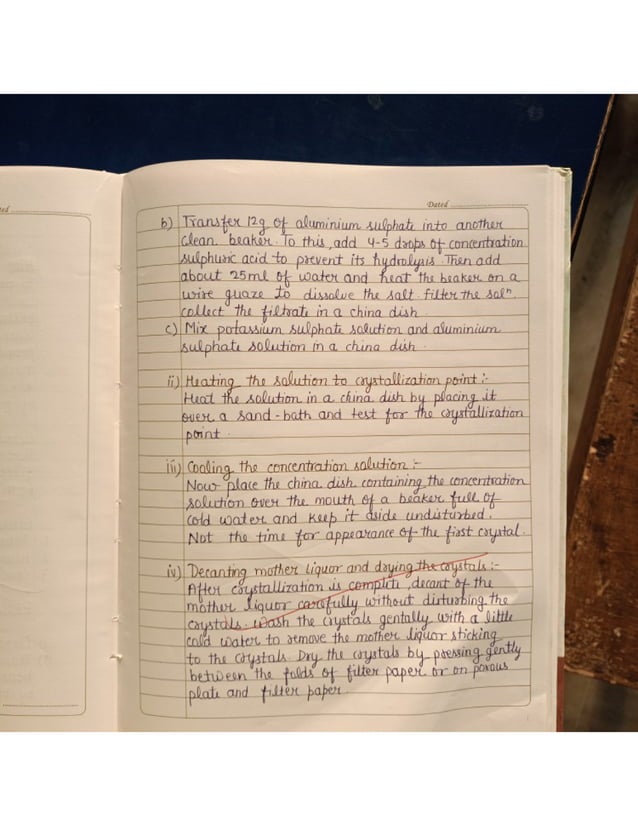 ted
Dated
b) Transfer 12g of aluminium sulphate into another
clean beaker. To this, add 4-5 drops of concentration
sulphuric acid to prevent its hydrolysis. Then add
about 25ml of water and heat the beaker on a
wire guaze to dissolve the salt. Filter the solⁿ.
collect the filtrate in a china dish.
c) Mix potassium sulphate solution and aluminium
sulphate solution in a china dish.
ii) Heating the solution to crystallization point :-
Heat the solution in a china dish by placing it
over a sand-bath and test for the crystallization
point.
iii) Cooling the concentration solution :-
Now place the china dish containing the concentration
solution over the mouth of a beaker full of
cold water and keep it aside undisturbed.
Not the time for appearance of the first crystal.
iv) Decanting mother liquor and drying the crystals :-
After crystallization is complete, decant of the
mother liquor carefully without disturbing the
crystals. Wash the crystals gentally with a little
cold water to remove the mother liquor sticking
to the crystals. Dry the crystals by pressing gently
between the folds of filter paper or on porous
plate and filter paper.